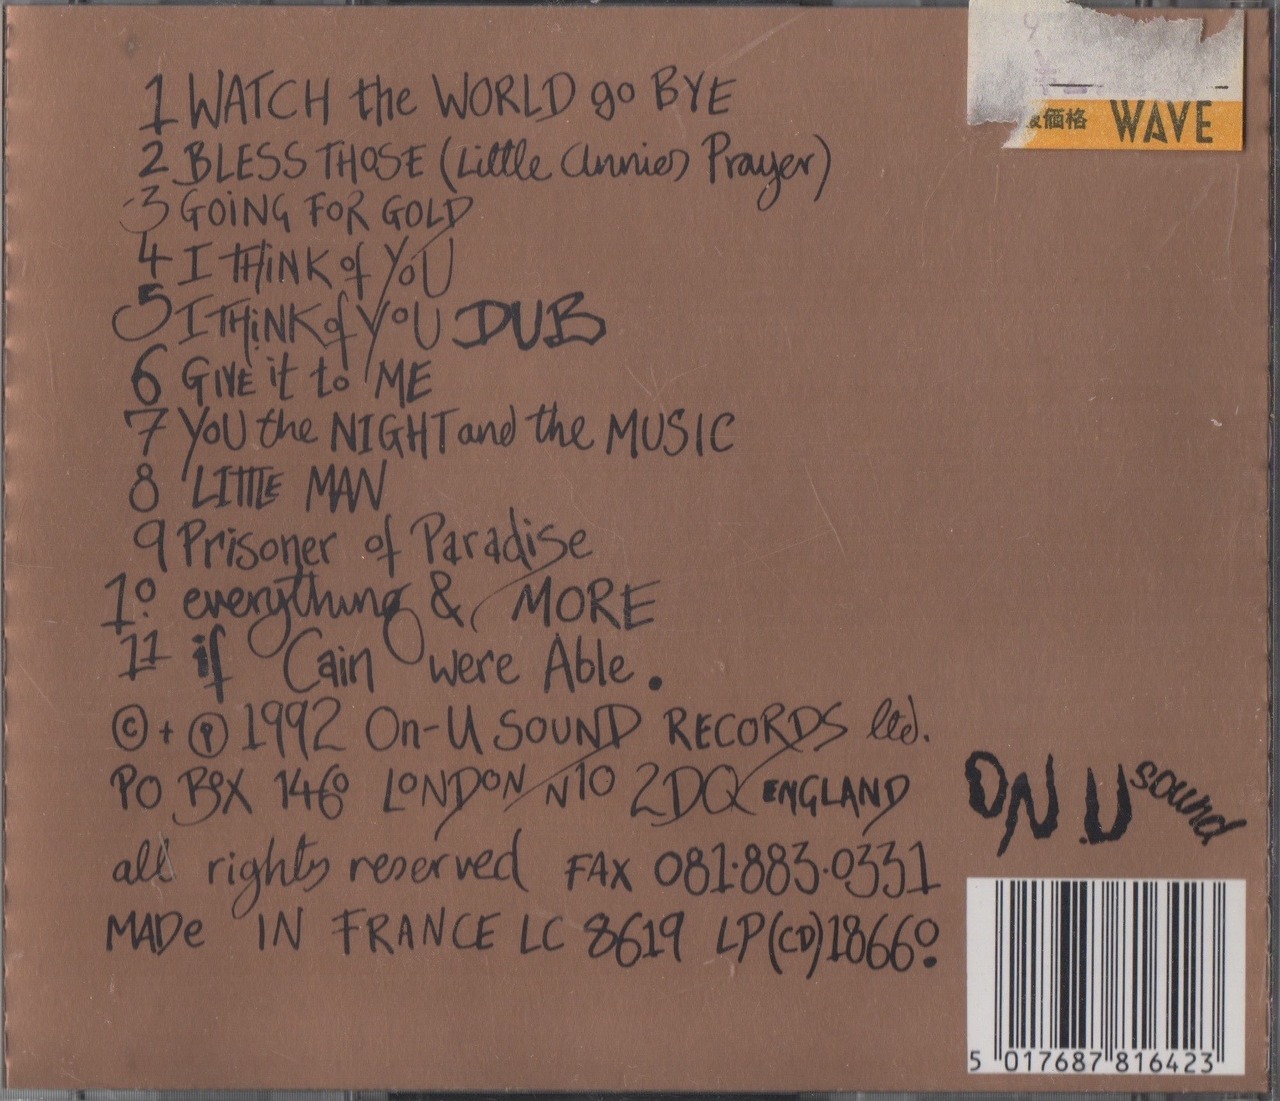 1 WATCH the WORLD go BYE
2 BLESS THOSE (Little Annies Prayer)
3 GOING FOR GOLD
4 I THINK of YOU
5 I THINK of YOU DUB
6 GIVE it to ME
7 YOU the NIGHT and the MUSIC
8 LITTLE MAN
9 Prisoner of Paradise
10. everything & MORE
11 if Cain were Able.
© + ℗ 1992 On-U SOUND RECORDS ltd.
PO BOX 1460 LONDON N10 2DQ ENGLAND
all rights reserved FAX 081·883·0331
MADe IN FRANCE LC 8619 LP(CD)18660.
価格 WAVE
ON.U sound
5 017687 816423